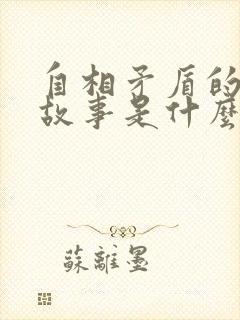 自相矛盾的
故事是什麼
蘇離墨